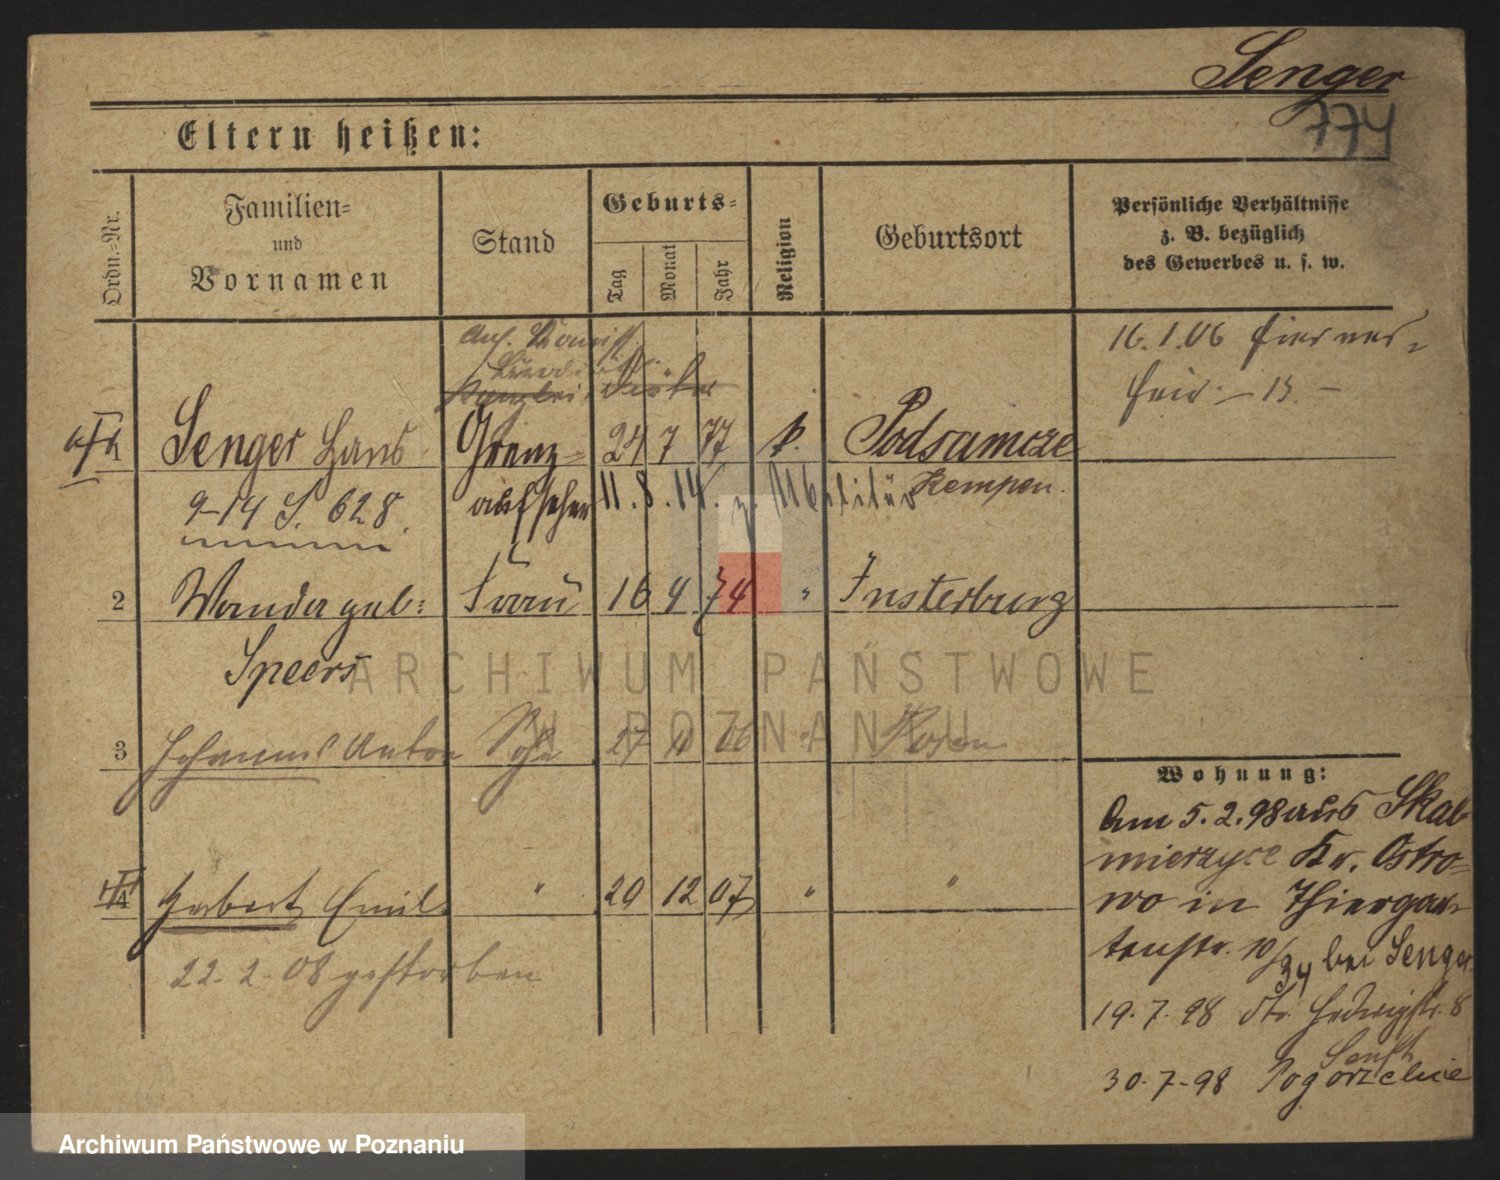 Senger
774
Eltern heißen:
Ordn.=Nr.
Familien=
und
Vornamen
Stand
Geburts=
Tag
Monat
Jahr
Religion
Geburtsort
Persönliche Verhältnisse
z. B. bezüglich
des Gewerbes u. s. w.
16.1.06
1
Senger Hans
Grenz=
aufseher
24 7 77
k.
Podsamcze
Kempen.
9-14 S. 628.
11.8.14. z. Militär
2
Wanda geb:
Speers
Frau
16 4 74
"
Insterburg
3
Johannes Anton
Sohn
27 11 06
"
Posen
4
Herbert Emil
"
20 12 07
"
"
22-2-08 gestorben
Wohnung:
Am 5.2.98 aus Skal-
mierzyce Kr. Ostro-
wo in Thiergar-
tenstr. 10/34 bei Senger
19.7.98 Hedwigstr. 8
30-7-98 Pogorzelice
ARCHIWUM PAŃSTWOWE
W POZNANIU
Archiwum Państwowe w Poznaniu